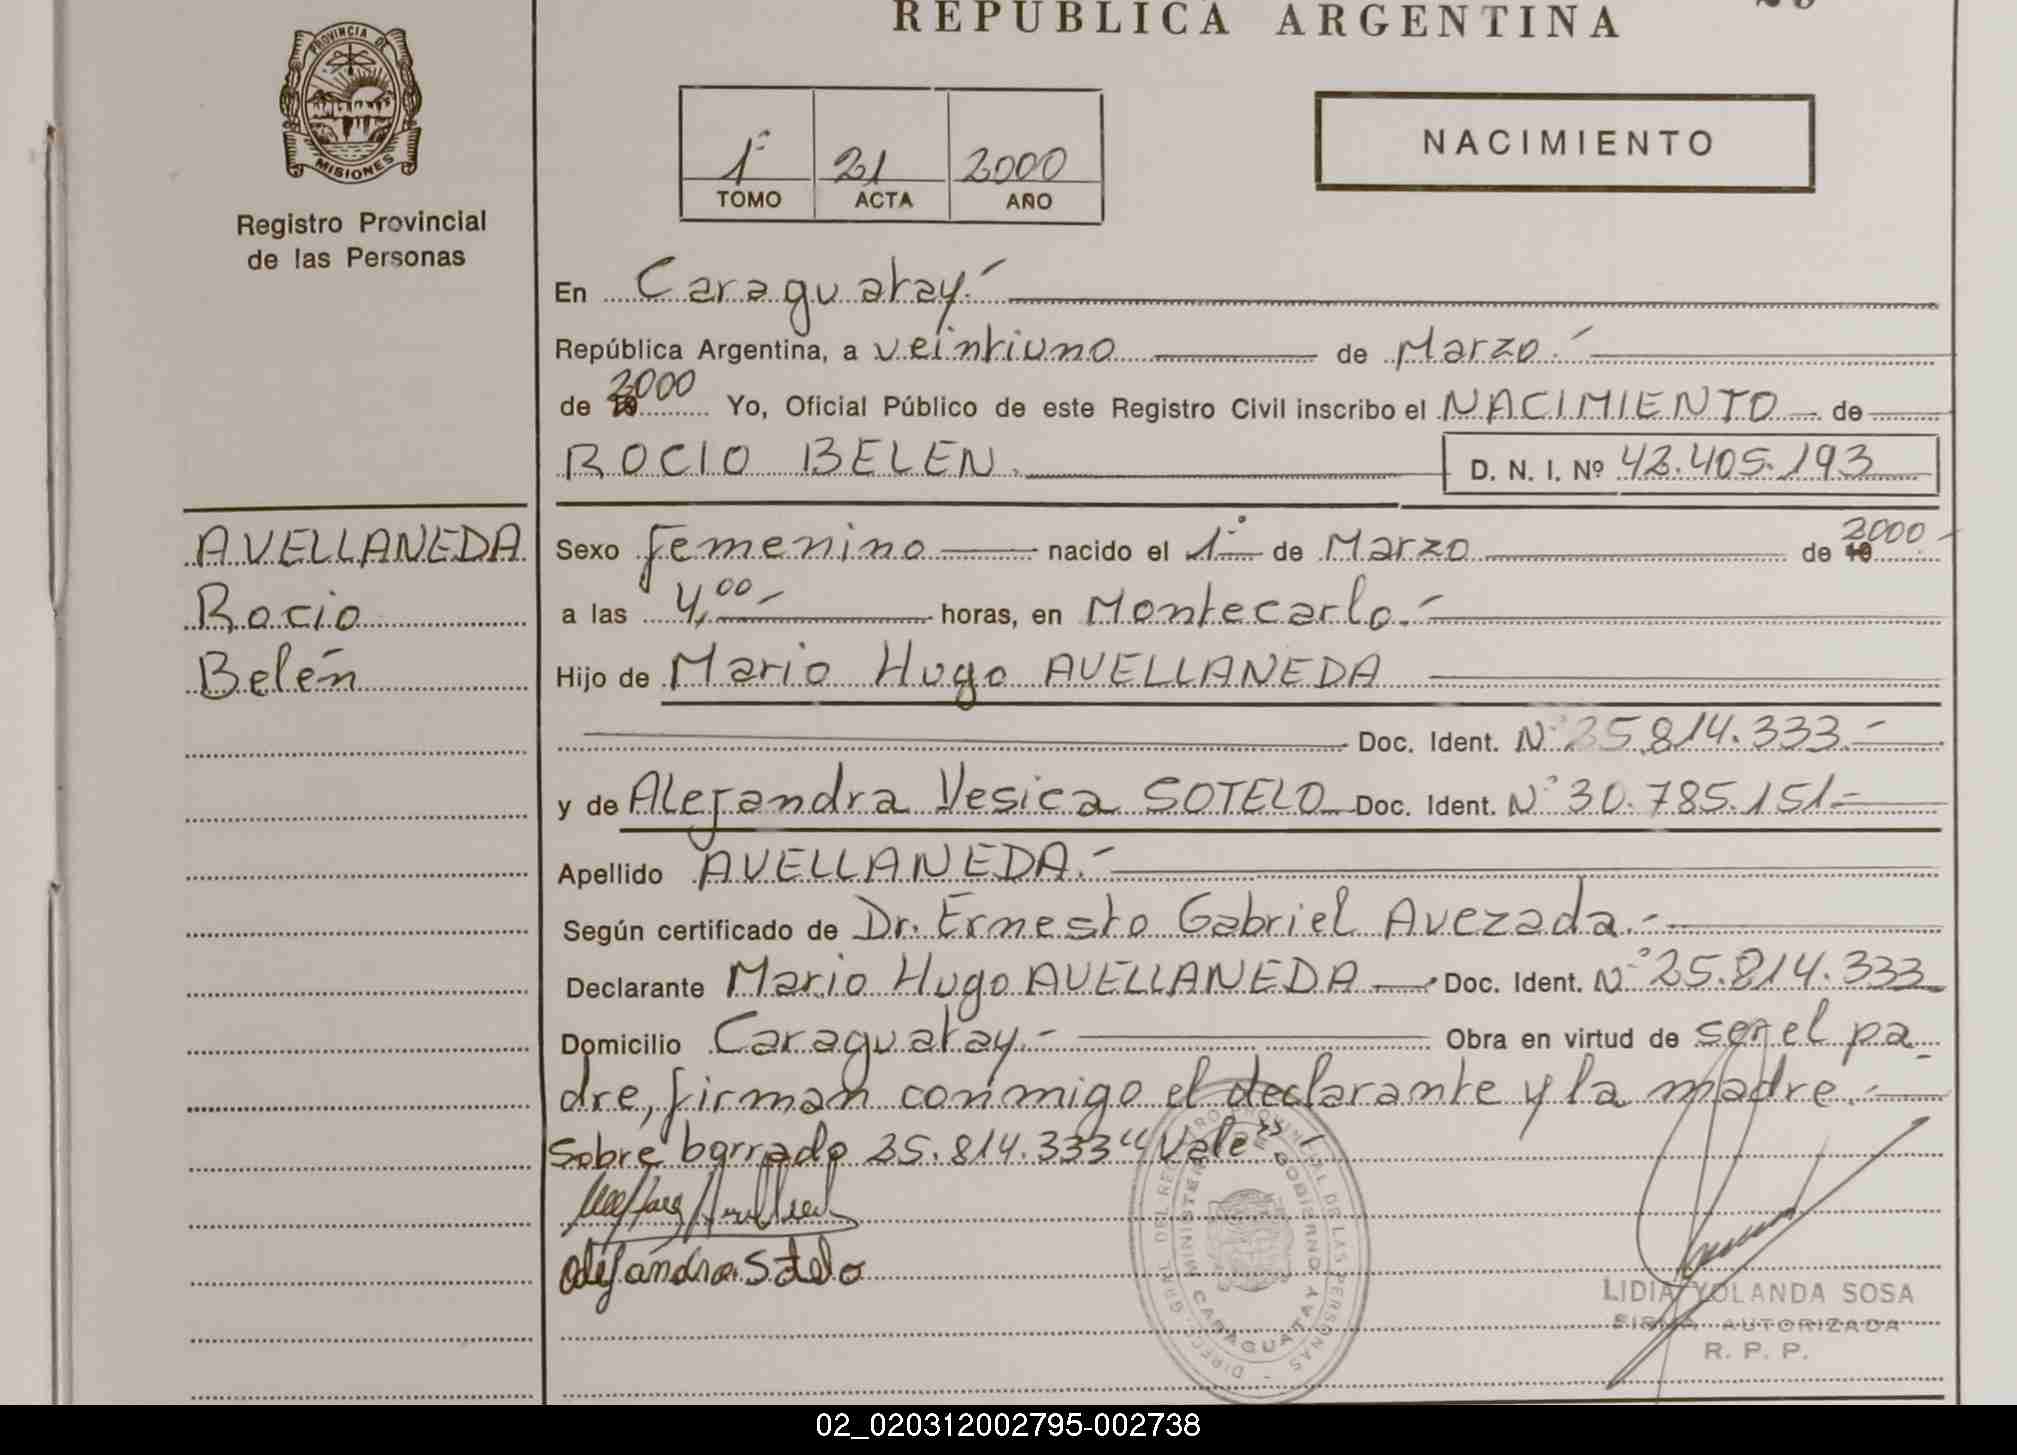 REPUBLICA ARGENTINA
PROVINCIA DE
MISIONES
Registro Provincial
de las Personas
1º 21 2000
TOMO ACTA AÑO
NACIMIENTO
En Caraguatay.-
República Argentina, a veintiuno de Marzo.-
de 2000 Yo, Oficial Público de este Registro Civil inscribo el NACIMIENTO de
ROCIO BELEN. D. N. I. Nº 42.405.193
AVELLANEDA
Rocio
Belén
Sexo femenino nacido el 1º de Marzo de 2000-
a las 4,00- horas, en Montecarlo.-
Hijo de Mario Hugo AVELLANEDA
Doc. Ident. Nº 25.814.333.-
y de Alejandra Yesica SOTELO Doc. Ident. Nº 30.785.151.-
Apellido AVELLANEDA.-
Según certificado de Dr. Ernesto Gabriel Avezada.-
Declarante Mario Hugo AVELLANEDA Doc. Ident. Nº 25.814.333
Domicilio Caraguatay.- Obra en virtud de ser el pa-
dre, firman conmigo el declarante y la madre.-
Sobre borrado 25.814.333 "Vale"
Alejandra Sotelo
DIRECC. GRAL. DEL REGISTRO PROVINCIAL DE LAS PERSONAS
MINISTERIO DE GOBIERNO
CARAGUATAY
LIDIA YOLANDA SOSA
FIRMA AUTORIZADA
R. P. P.
02_020312002795-002738